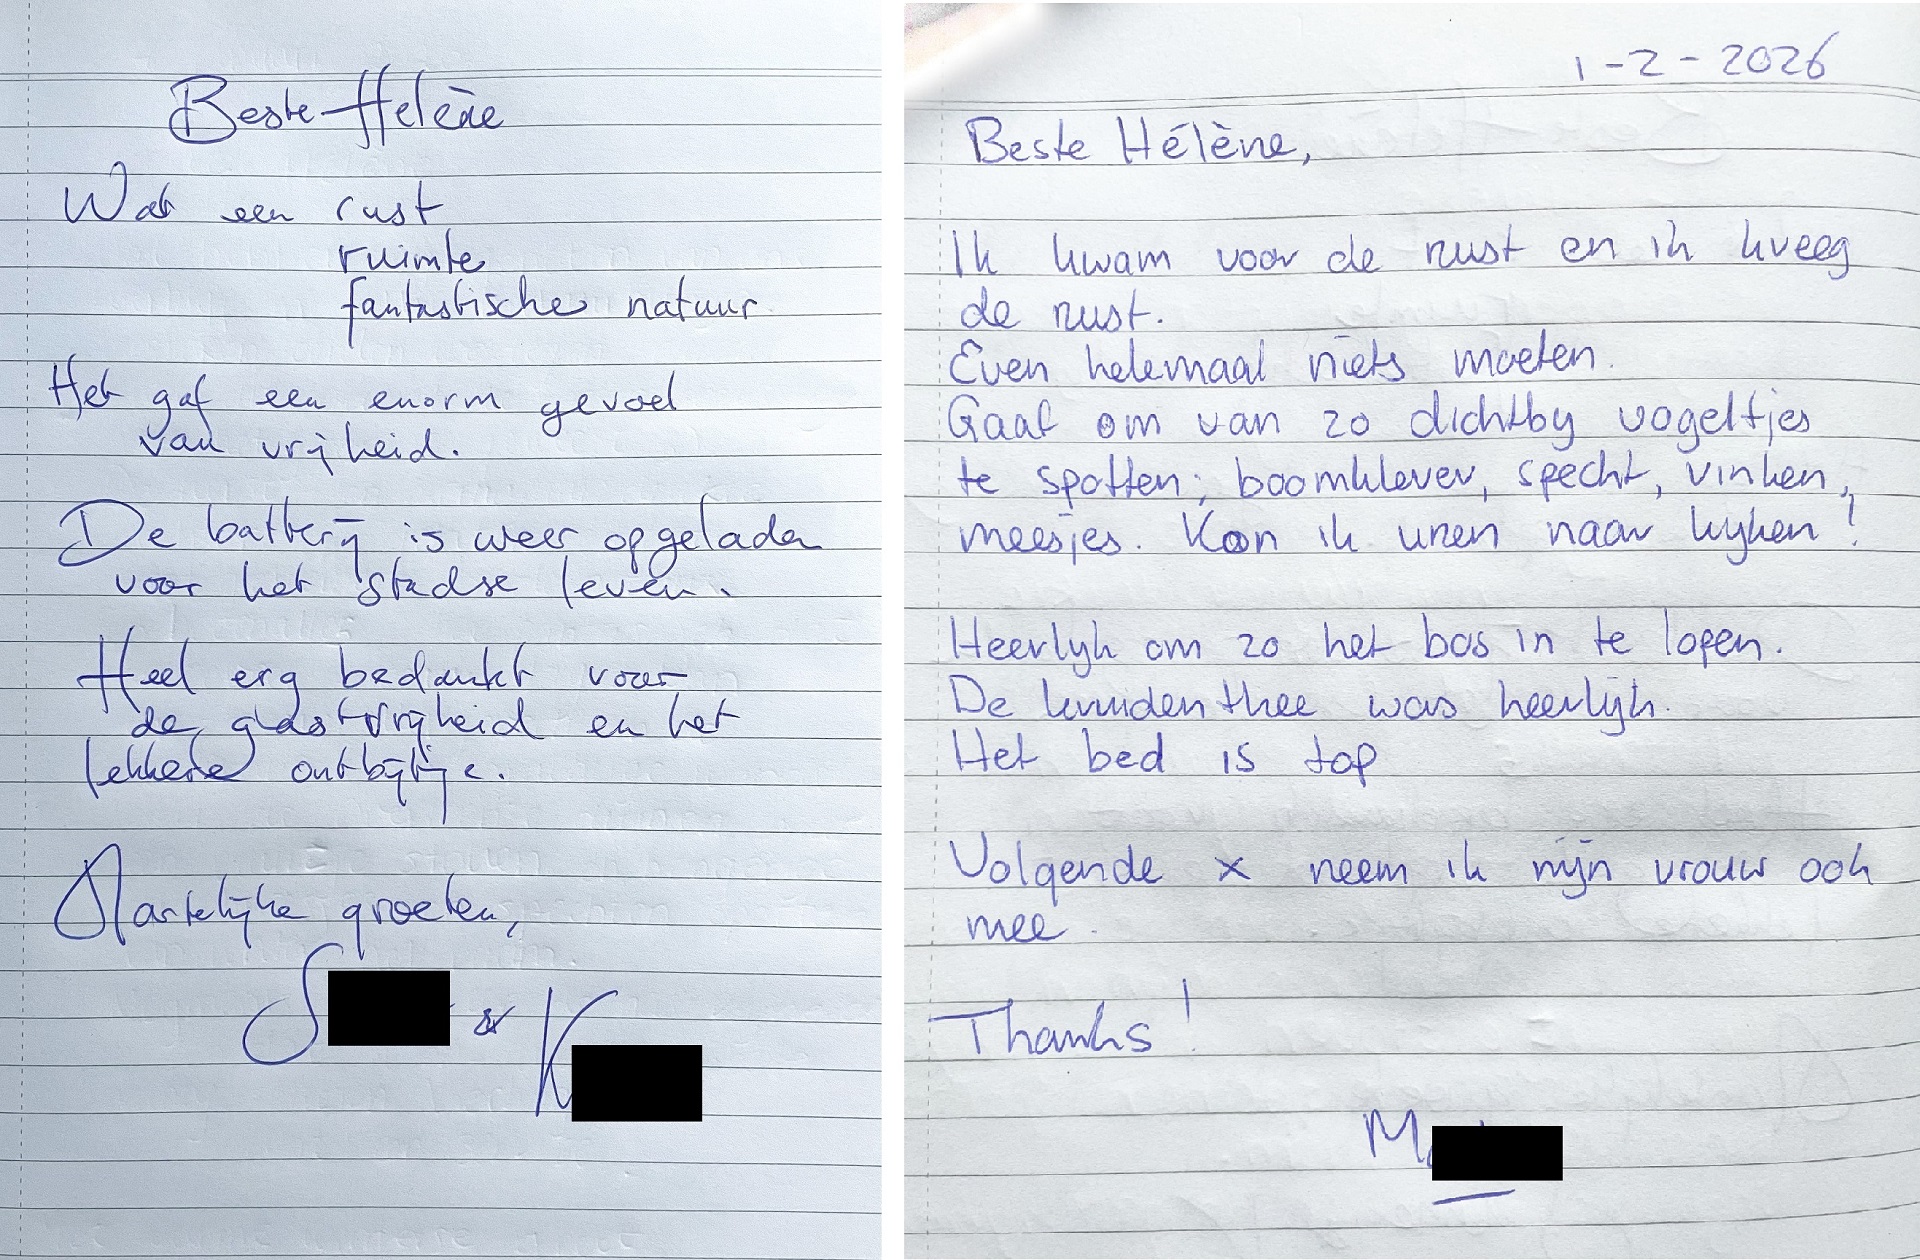 Beste Helène
Wat een rust
ruimte
fantastische natuur
Het gaf een enorm gevoel
van vrijheid.
De batterij is weer opgeladen
voor het stadse leven.
Heel erg bedankt voor
de gastvrijheid en het
lekkere ontbijtje.
Hartelijke groeten,
S & K
1-2-2026
Beste Hélène,
Ik kwam voor de rust en ik kreeg
de rust.
Even helemaal niets moeten.
Gaaf om van zo dichtby vogeltjes
te spotten; boomklever, specht, vinken,
meesjes. Kon ik uren naar kyken!
Heerlyk om zo het bos in te lopen.
De kruidenthee was heerlijk.
Het bed is top
Volgende x neem ik mijn vrouw ook
mee.
Thanks!
M